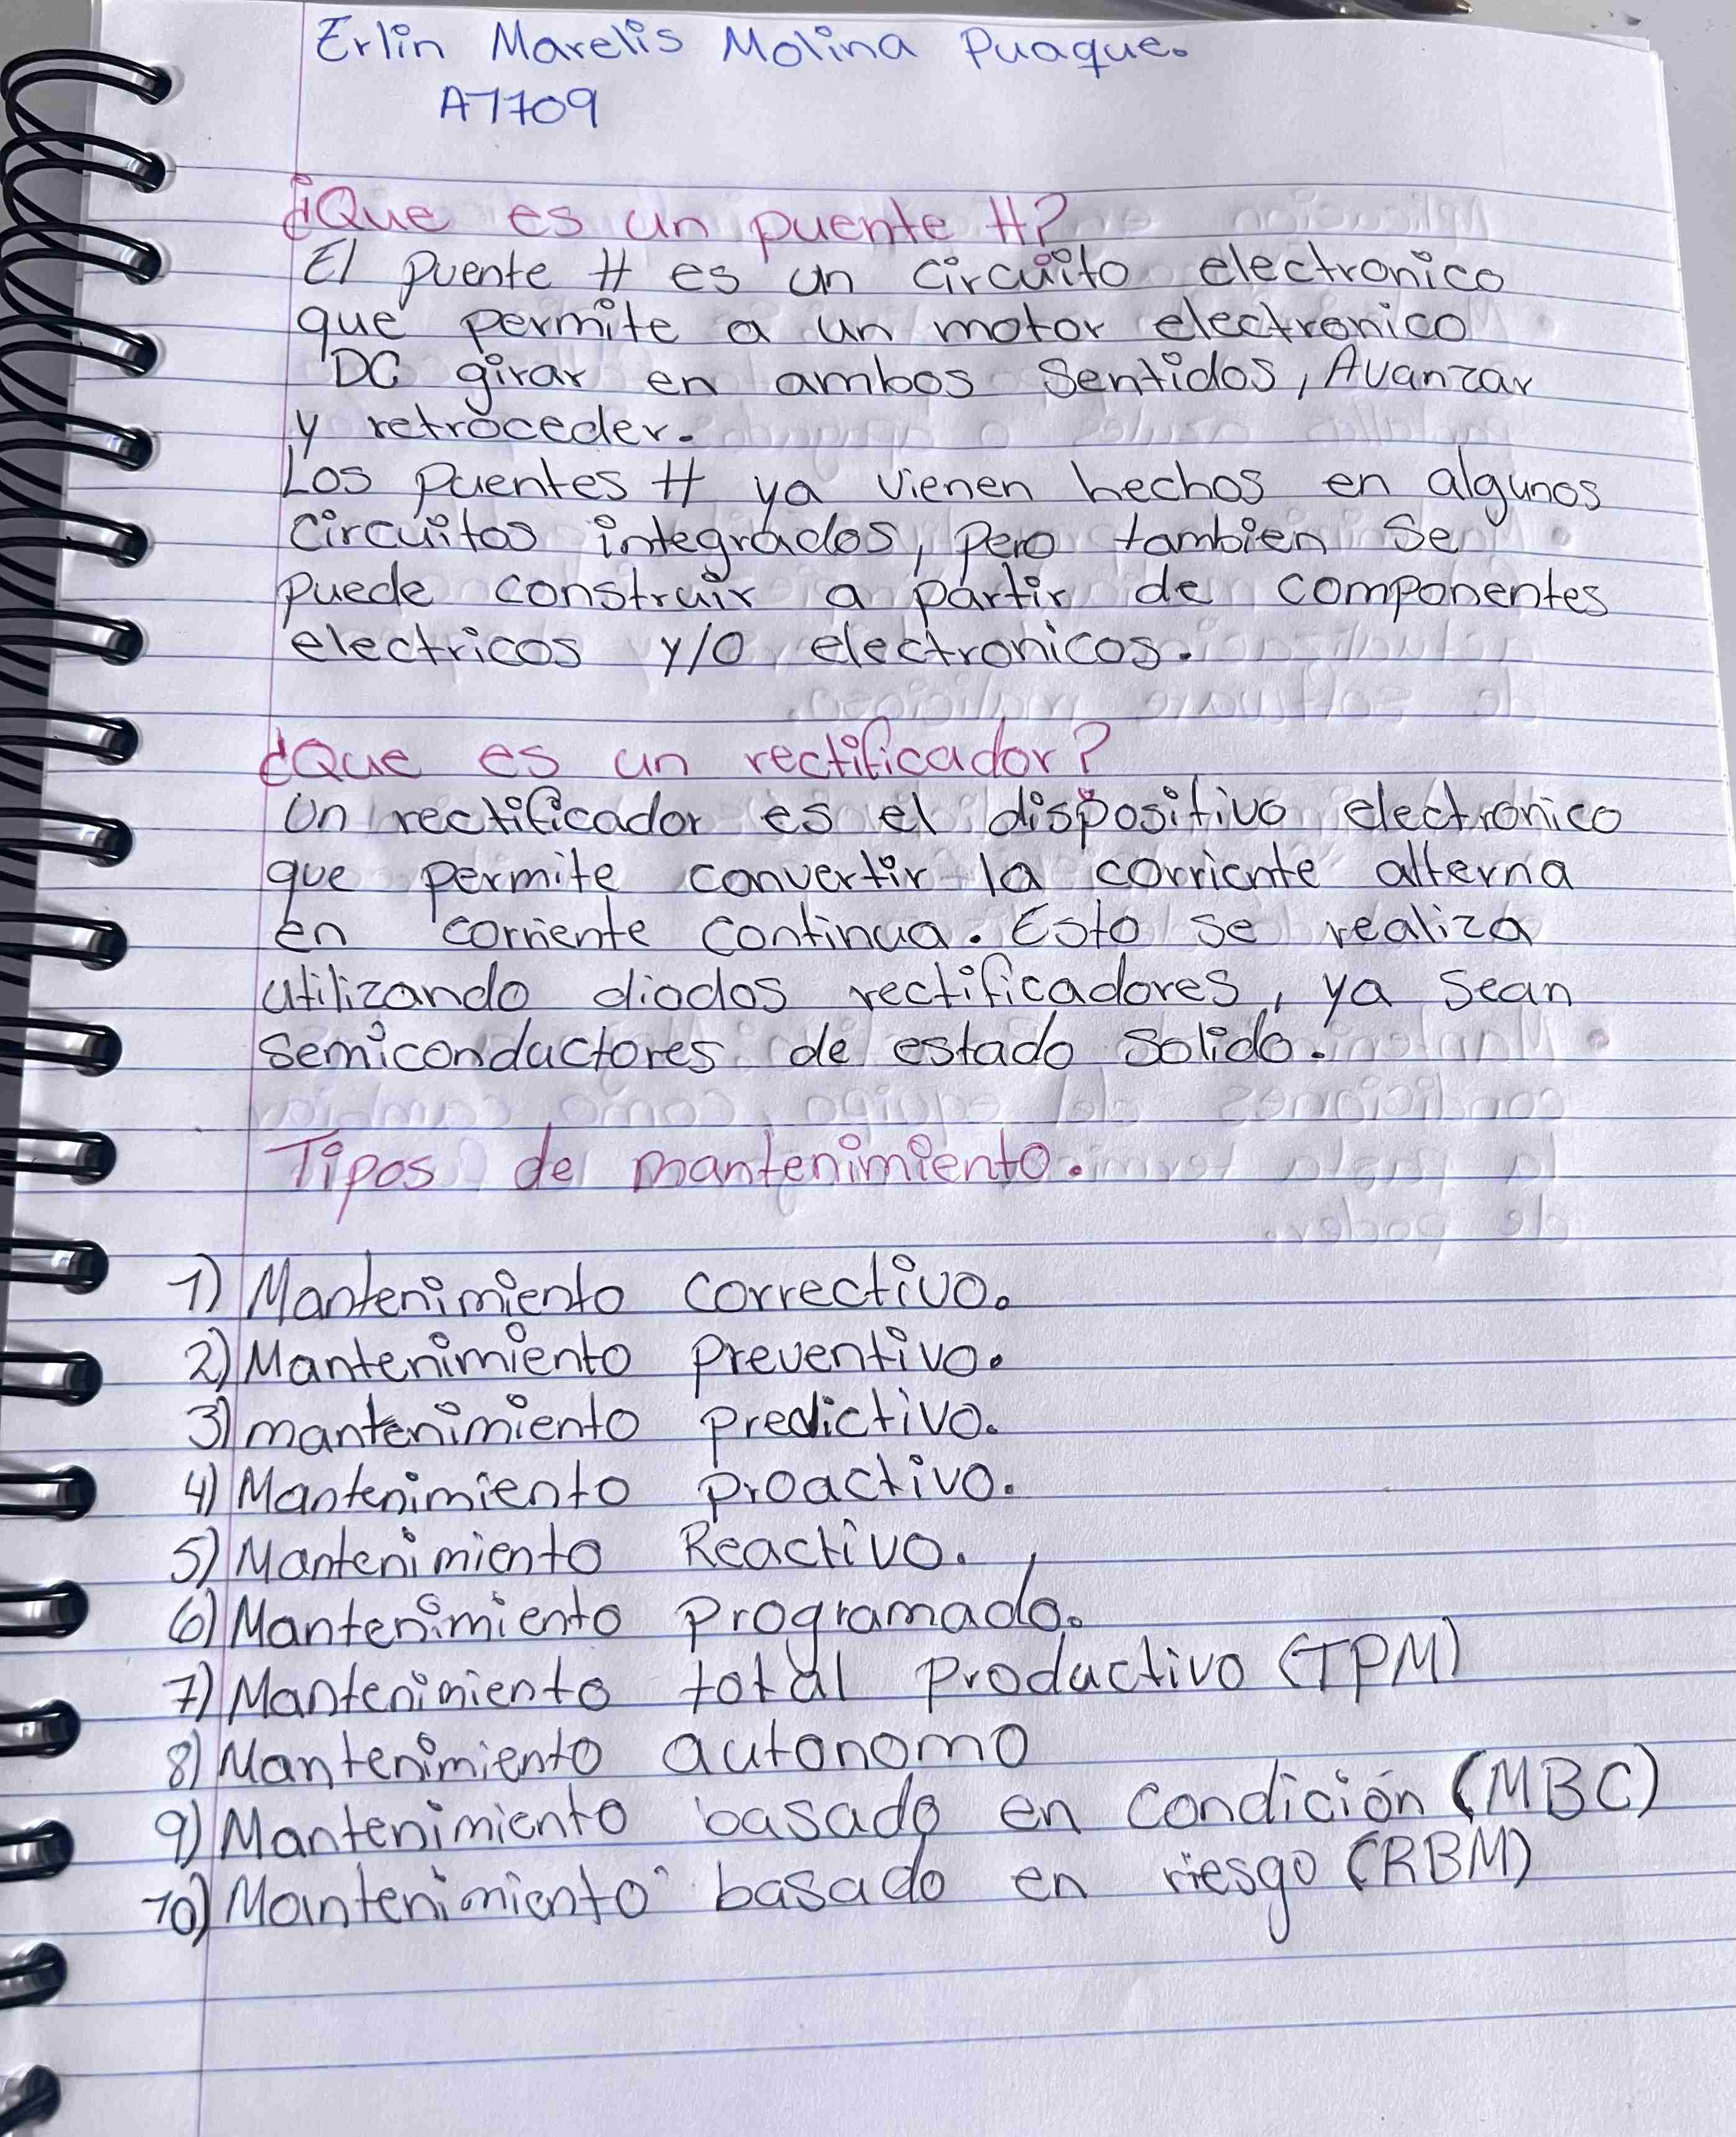 Erlin Marelis Molina Puaque.
A7709
¿Que es un puente H?
El puente H es un circuito electronico
que permite a un motor electronico
DC girar en ambos sentidos, Avanzar
y retroceder.
Los puentes H ya vienen hechos en algunos
circuitos integrados, pero tambien se
puede construir a partir de componentes
electricos y/o electronicos.
¿Que es un rectificador?
Un rectificador es el dispositivo electronico
que permite convertir la corriente alterna
en corriente continua. Esto se realiza
utilizando diodos rectificadores, ya sean
semiconductores de estado solido.
Tipos de mantenimiento.
1) Mantenimiento correctivo.
2) Mantenimiento preventivo.
3) mantenimiento predictivo.
4) Mantenimiento proactivo.
5) Mantenimiento Reactivo.
6) Mantenimiento programado.
7) Mantenimiento total productivo (TPM)
8) Mantenimiento autonomo
9) Mantenimiento basado en condición (MBC)
10) Mantenimiento basado en riesgo (RBM)